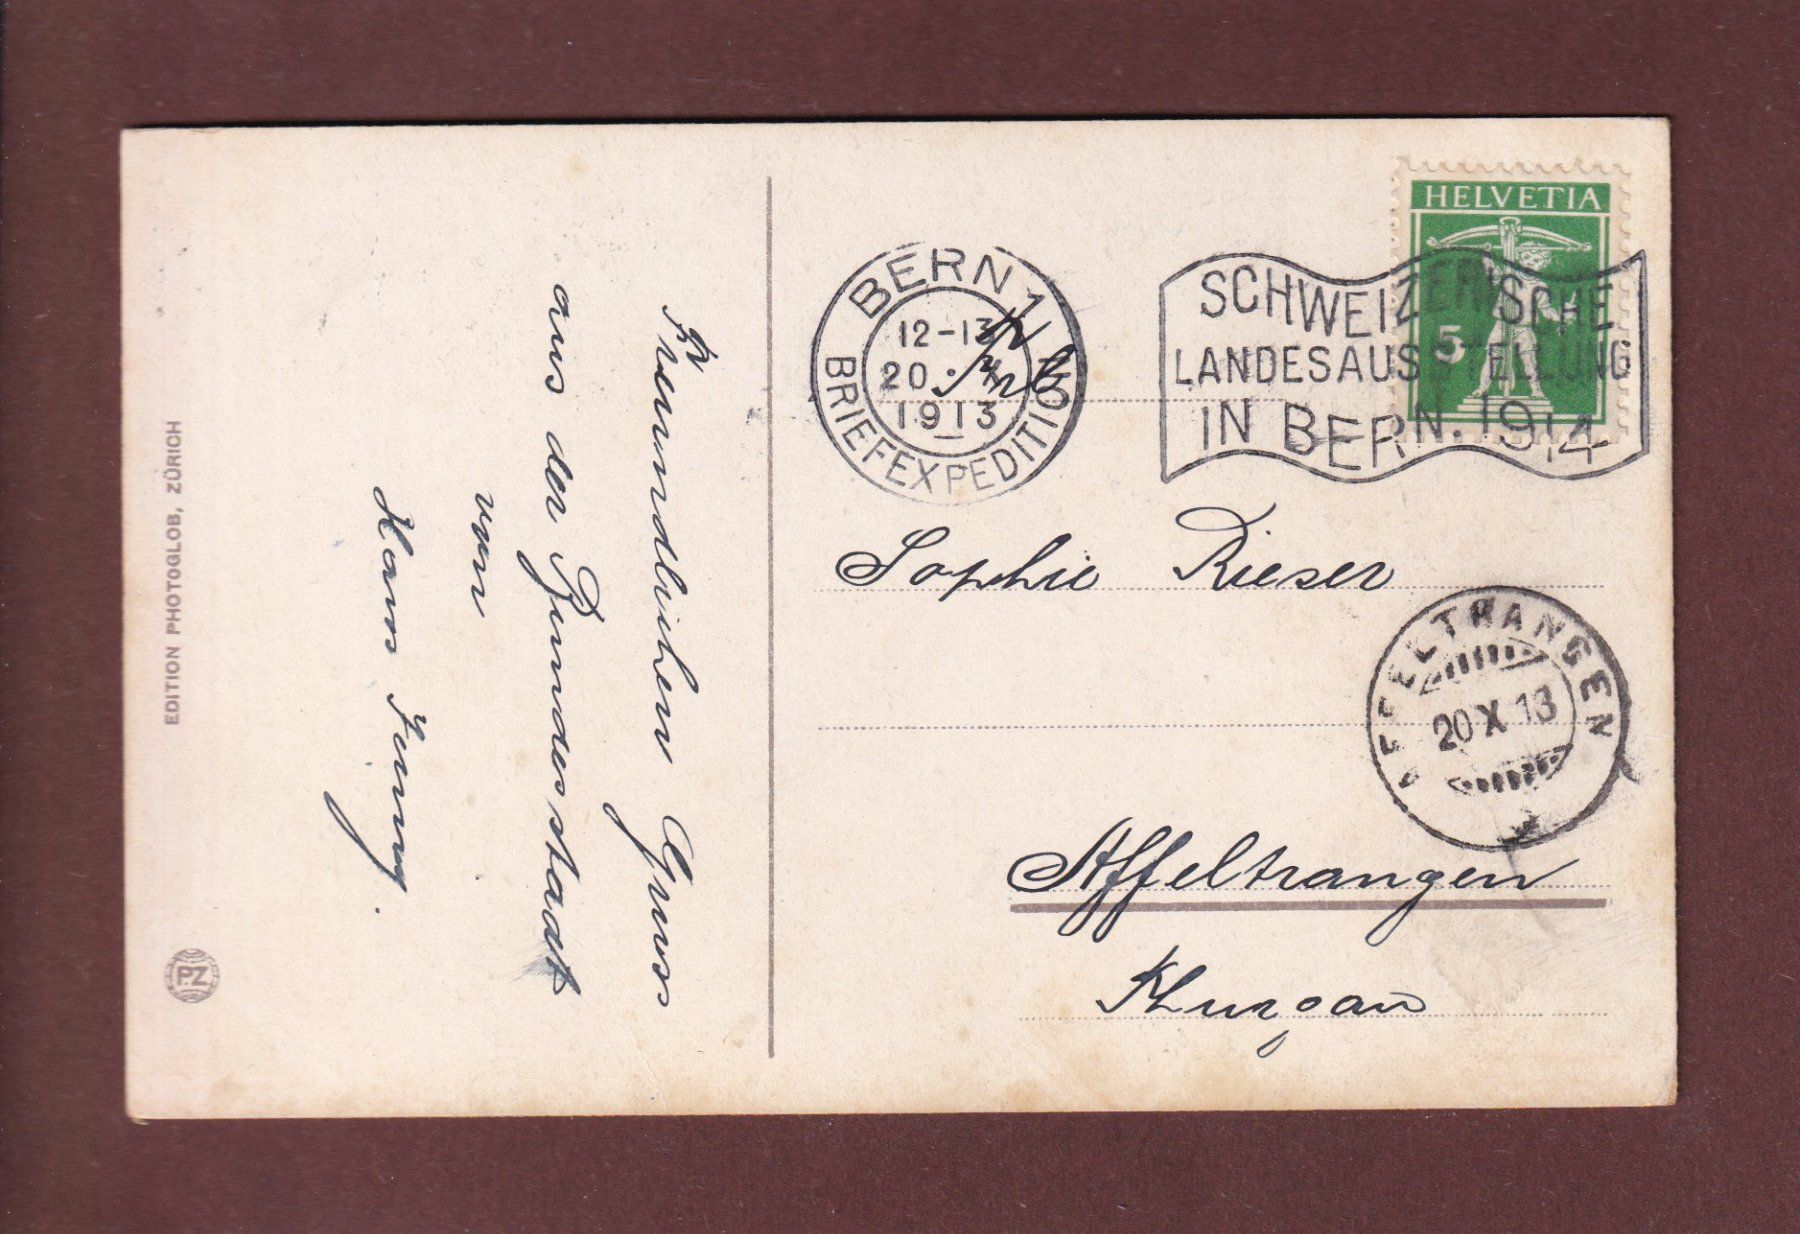 EDITION PHOTOGLOB, ZÜRICH
PZ
Freundlichen Gruss
aus der Bundesstaadt
von
Hans Jenny.
BERN 1
12-13
20. X
1913
BRIEFEXPEDITION
HELVETIA
5
SCHWEIZERISCHE
LANDESAUSSTELLUNG
IN BERN. 1914
Frl
Sophie Rieser
AFFELTRANGEN
20 X 13
Affeltrangen
Thurgau